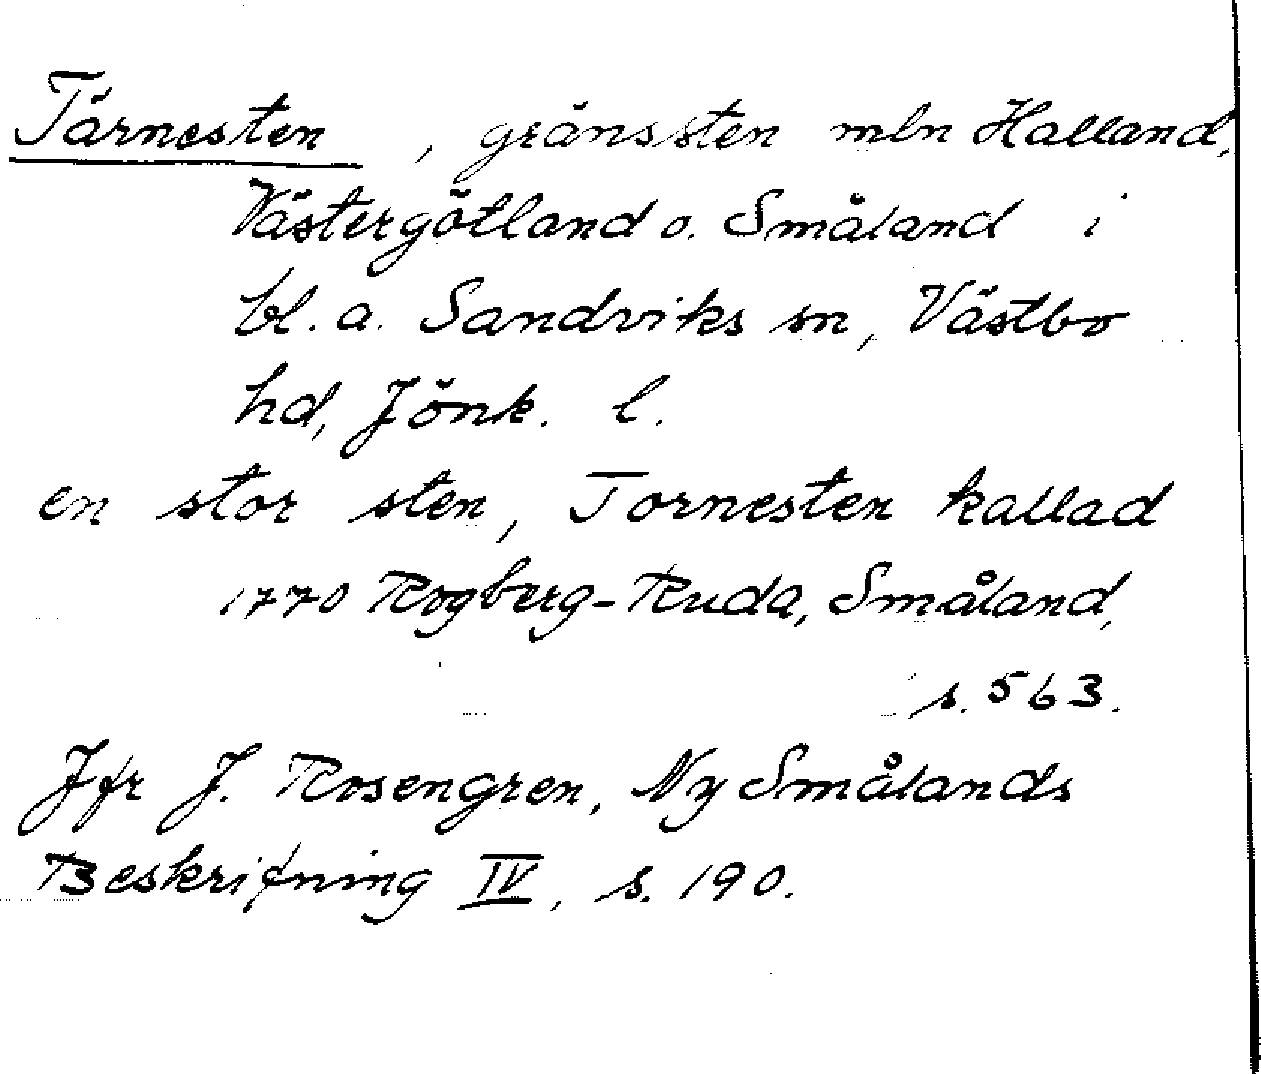 Tärnesten, gränssten mln Halland,
Västergötland o. Småland i
bl. a. Sandviks sn, Västbo
hd, Jönk. l.
en stor sten, Tornesten kallad
1770 Rogberg-Ruda, Småland,
s. 563.
Jfr J. Rosengren, Ny Smålands
Beskrifning IV, s. 190.